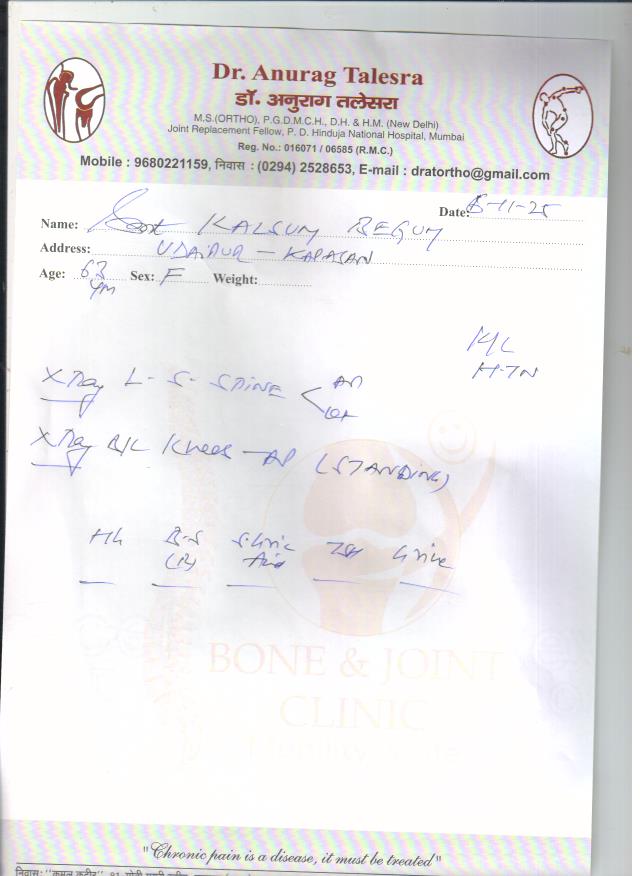 Dr. Anurag Talesra
डॉ. अनुराग तलेसरा
M.S.(ORTHO), P.G.D.M.C.H., D.H. & H.M. (New Delhi)
Joint Replacement Fellow, P. D. Hinduja National Hospital, Mumbai
Reg. No.: 016071 / 06585 (R.M.C.)
Mobile : 9680221159, निवास : (0294) 2528653, E-mail : dratortho@gmail.com
Date: 5-11-25
Name: KALSUM BEGUM
Address: UDAIPUR - KAPASAN
Age: 63 Sex: F Weight:
K/C
HTN
X Ray L-S-SPINE AP
Lat
X Ray B/L Knees - AP (STANDING)
Hb B-S S.Uric TSH Urine
(R) Acid
BONE & JOINT
CLINIC
"Chronic pain is a disease, it must be treated"